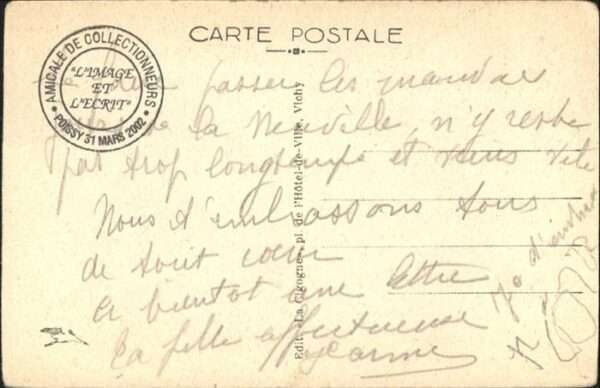 CARTE POSTALE
AMICALE DE COLLECTIONNEURS
"L'IMAGE
ET
L'ECRIT"
POISSY 31 MARS 2002
passer les
la Neuville, n'y reste
pas trop longtemps et viens vite
Nous t'embrassons tous
de tout cœur
A bientot une lettre
ta fille affectueuse
Edit. "La Cigogne", pl. de l'Hôtel-de-Ville, Vichy